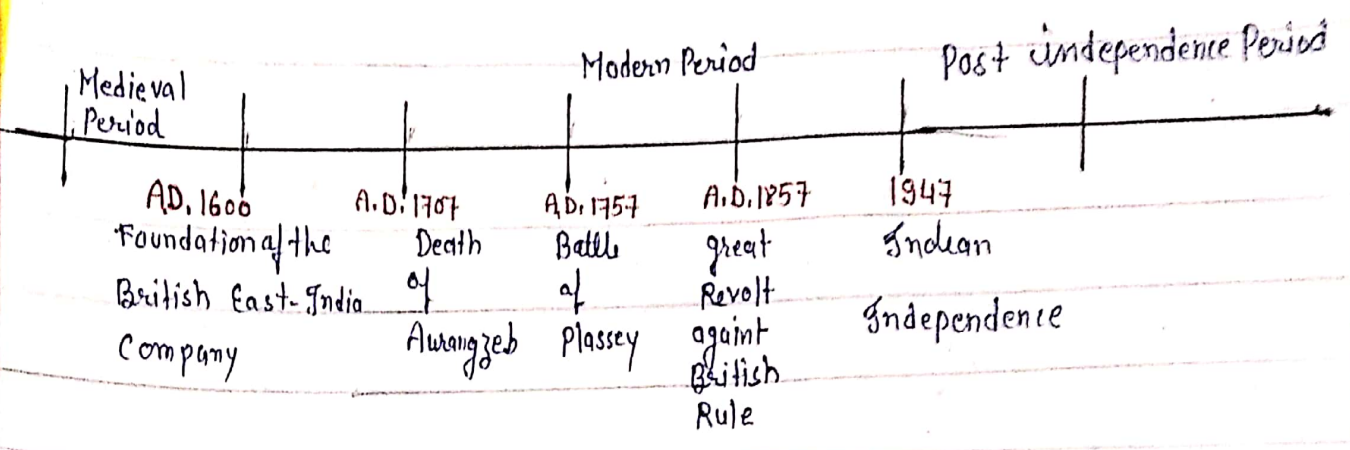 Medieval
Period
Modern Period
Post independence Period
A.D. 1600
Foundation of the
British East-India
Company
A.D. 1707
Death
of
Aurangzeb
A.D. 1757
Battle
of
Plassey
A.D. 1857
great
Revolt
againt
British
Rule
1947
Indian
Independence